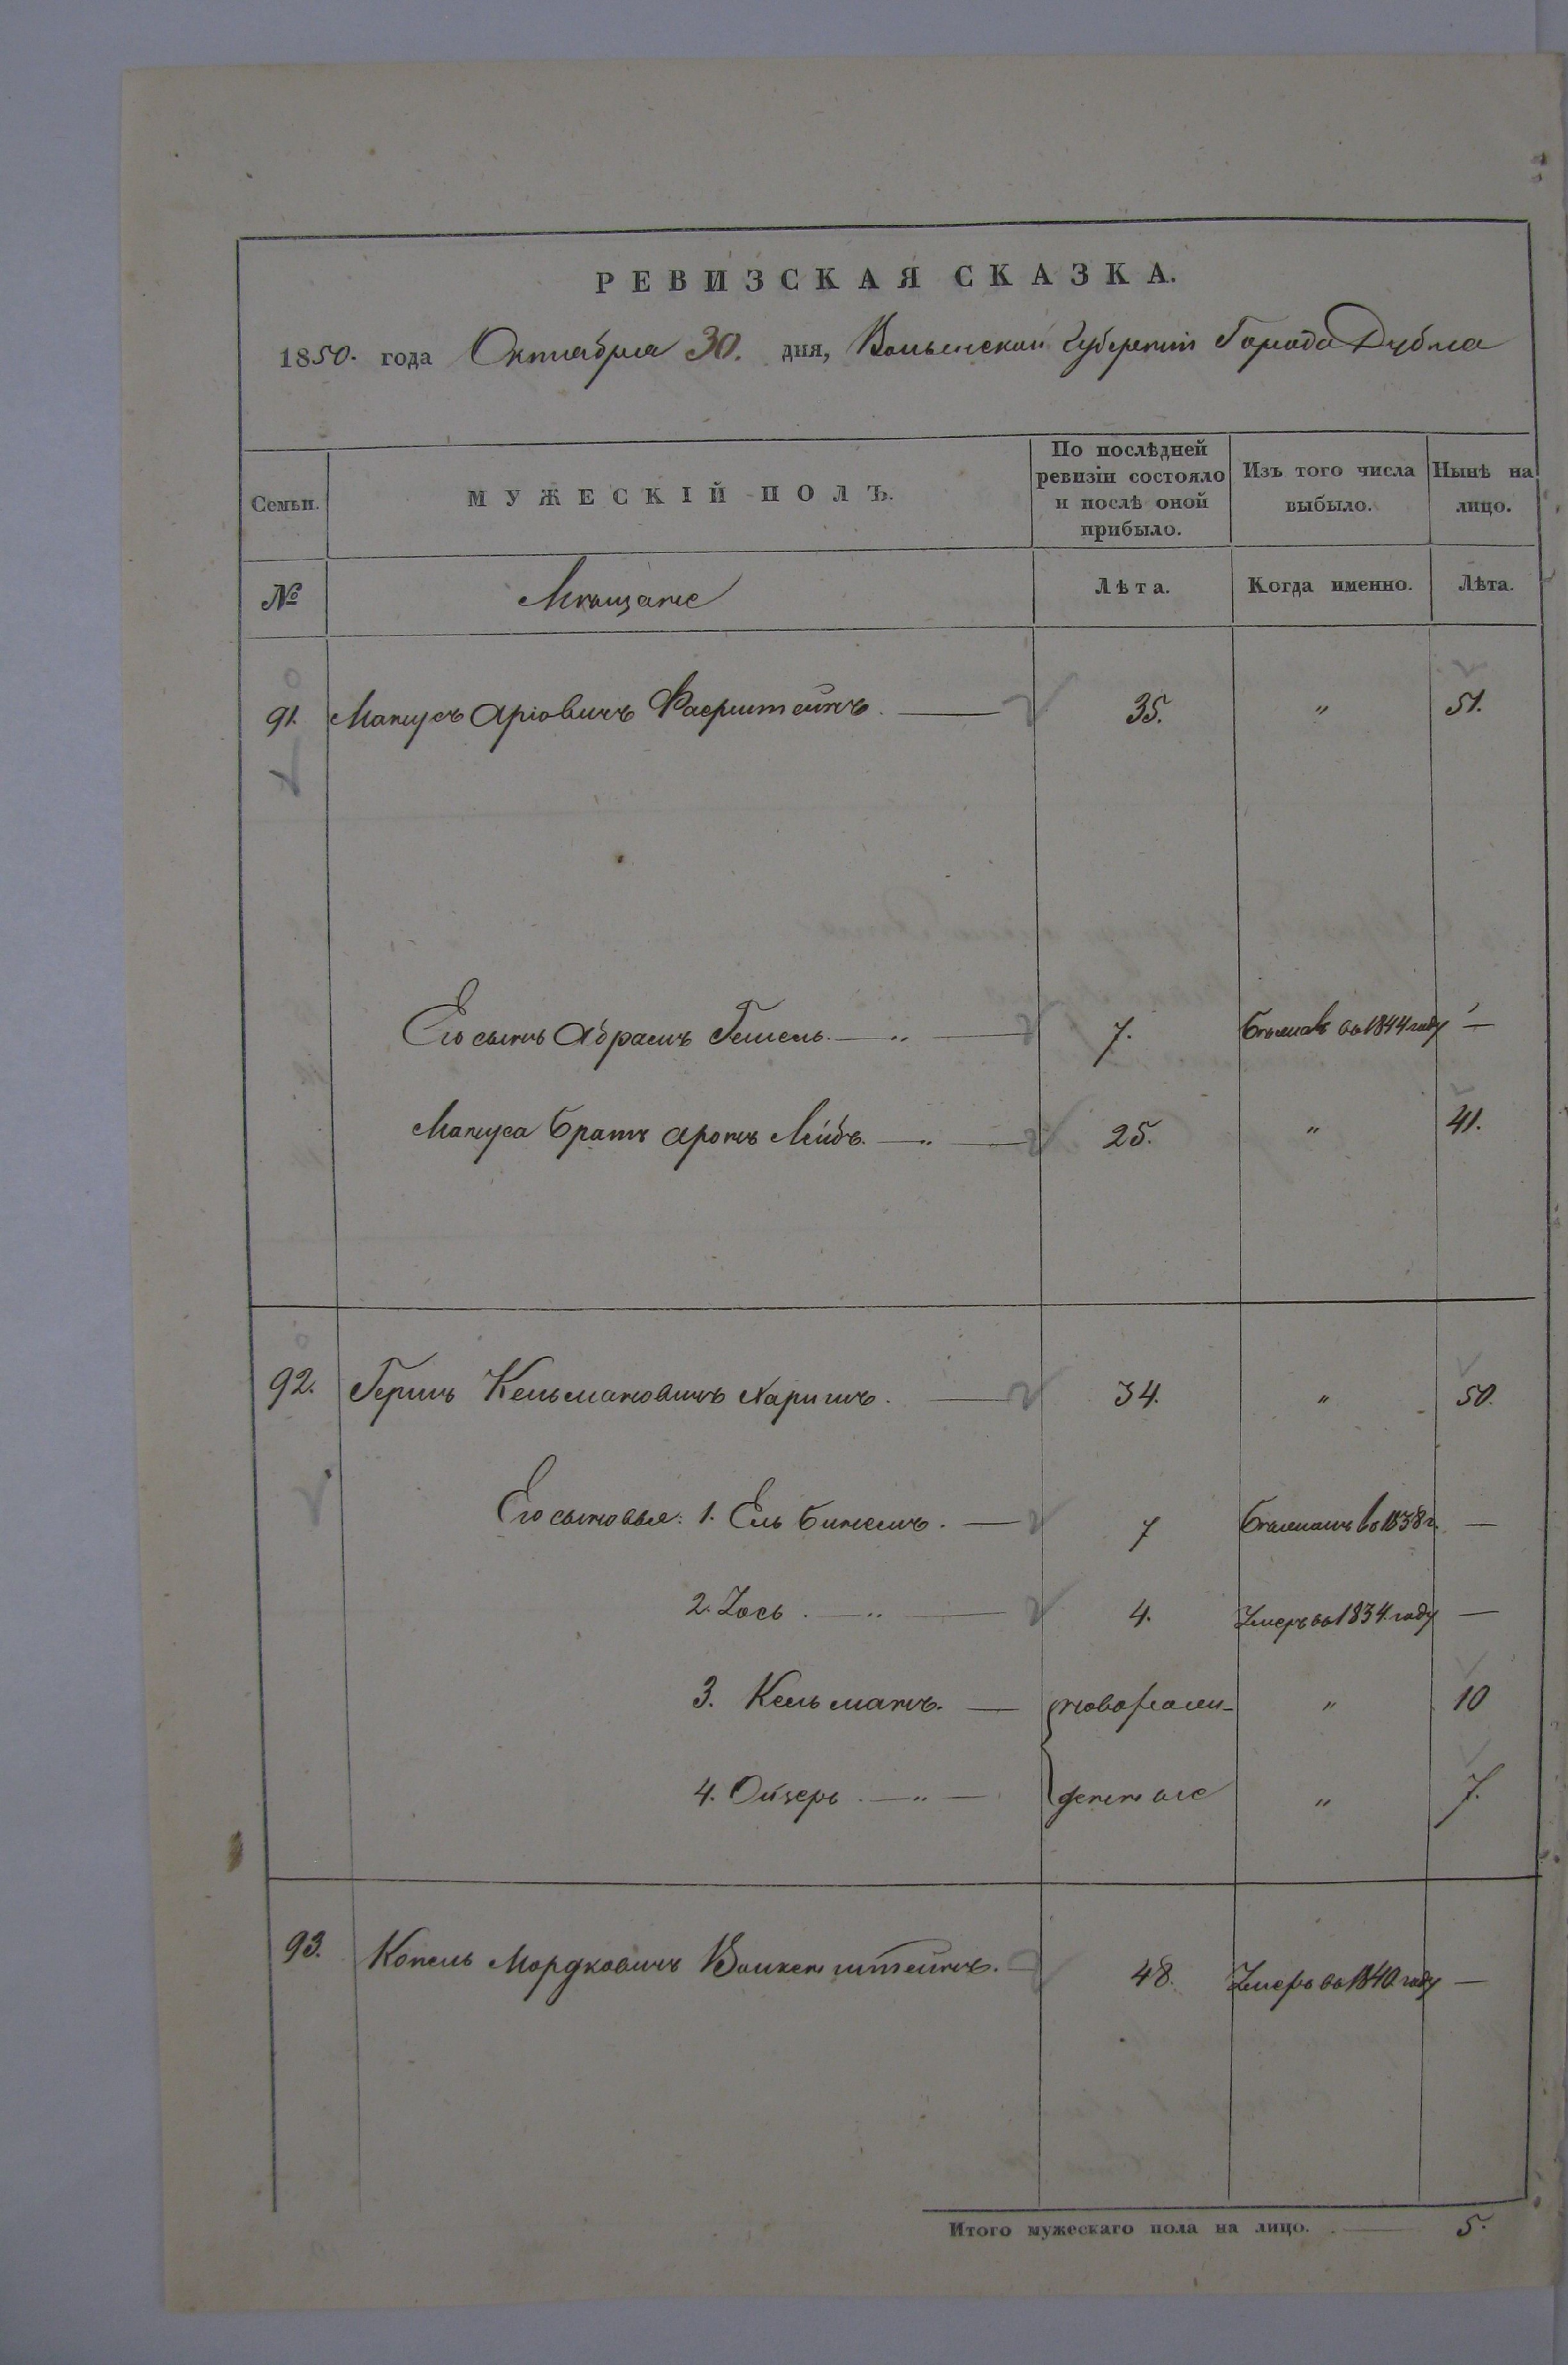 РЕВИЗСКАЯ СКАЗКА.
1850. года Октября 30. дня, Волынской Губерніи Города Дубна
Семьи.
МУЖЕСКІЙ ПОЛЪ.
По послѣдней ревизіи состояло и послѣ оной прибыло.
Изъ того числа выбыло.
Нынѣ на лицо.
№
Мѣщане
Лѣта.
Когда именно.
Лѣта.
91. Манусъ Аріовичъ Фаерштейнъ. — 35. " 51.
Его сынъ Абрамъ Гешель. — " — 7. бѣжалъ во 1844 году —
Мануса братъ Аронъ Лейбъ. — " — 25. " 41.
92. Гершъ Кельмановичъ — 34. " 50.
Его сыновья: 1. Ель — 7 бѣжалъ во 1838 г. —
2. Зось. — " — 4. Умеръ во 1834 году —
3. Кельманъ. — новорож- " 10
4. Ойзеръ. — " — денные " 7.
93. Копель Мордковичъ — 48. Умеръ во 1840 году —
Итого мужескаго пола на лицо. — 5.